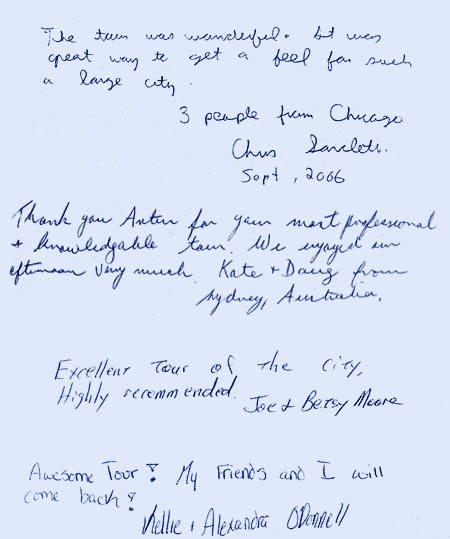 The tour was wonderful. It was
great way to get a feel for such
a large city.
3 people from Chicago
Chris
Sept, 2006
Thank you Artur for your most professional
+ knowledgable tour. We enjoyed our
afternoon very much. Kate + Doug from
Sydney, Australia.
Excellent Tour of the city,
Highly recommended.
Joe + Betsy Moore
Awesome Tour! My Friends and I will
come back!
Kellie + Alexandra O'Donnell